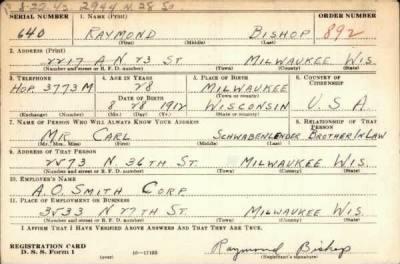 8-22-42 2944 N. 28 St
SERIAL NUMBER 1. NAME (Print) ORDER NUMBER
640 RAYMOND BISHOP 892
(First) (Middle) (Last)
2. ADDRESS (Print)
2217 A N 23 ST MILWAUKEE WIS.
(Number and street or R. F. D. number) (Town) (County) (State)
3. TELEPHONE 4. AGE IN YEARS 5. PLACE OF BIRTH 6. COUNTRY OF CITIZENSHIP
HOP. 3773M 28 MILWAUKEE
DATE OF BIRTH (Town) (County)
8 28 1912 WISCONSIN U. S. A
(Exchange) (Number) (Mo.) (Day) (Yr.) (State or country)
7. NAME OF PERSON WHO WILL ALWAYS KNOW YOUR ADDRESS 8. RELATIONSHIP OF THAT PERSON
MR. CARL SCHWABENLENDER BROTHER IN LAW
(Mr., Mrs., Miss) (First) (Middle) (Last)
9. ADDRESS OF THAT PERSON
2273 N. 36TH ST. MILWAUKEE WIS.
(Number and street or R. F. D. number) (Town) (County) (State)
10. EMPLOYER'S NAME
A.O. SMITH CORP.
11. PLACE OF EMPLOYMENT OR BUSINESS
3533 N 27TH ST. MILWAUKEE WIS.
(Number and street or R. F. D. number) (Town) (County) (State)
I AFFIRM THAT I HAVE VERIFIED ABOVE ANSWERS AND THAT THEY ARE TRUE.
REGISTRATION CARD
D. S. S. Form 1 (over) 16-17105 Raymond Bishop
(Registrant's signature)